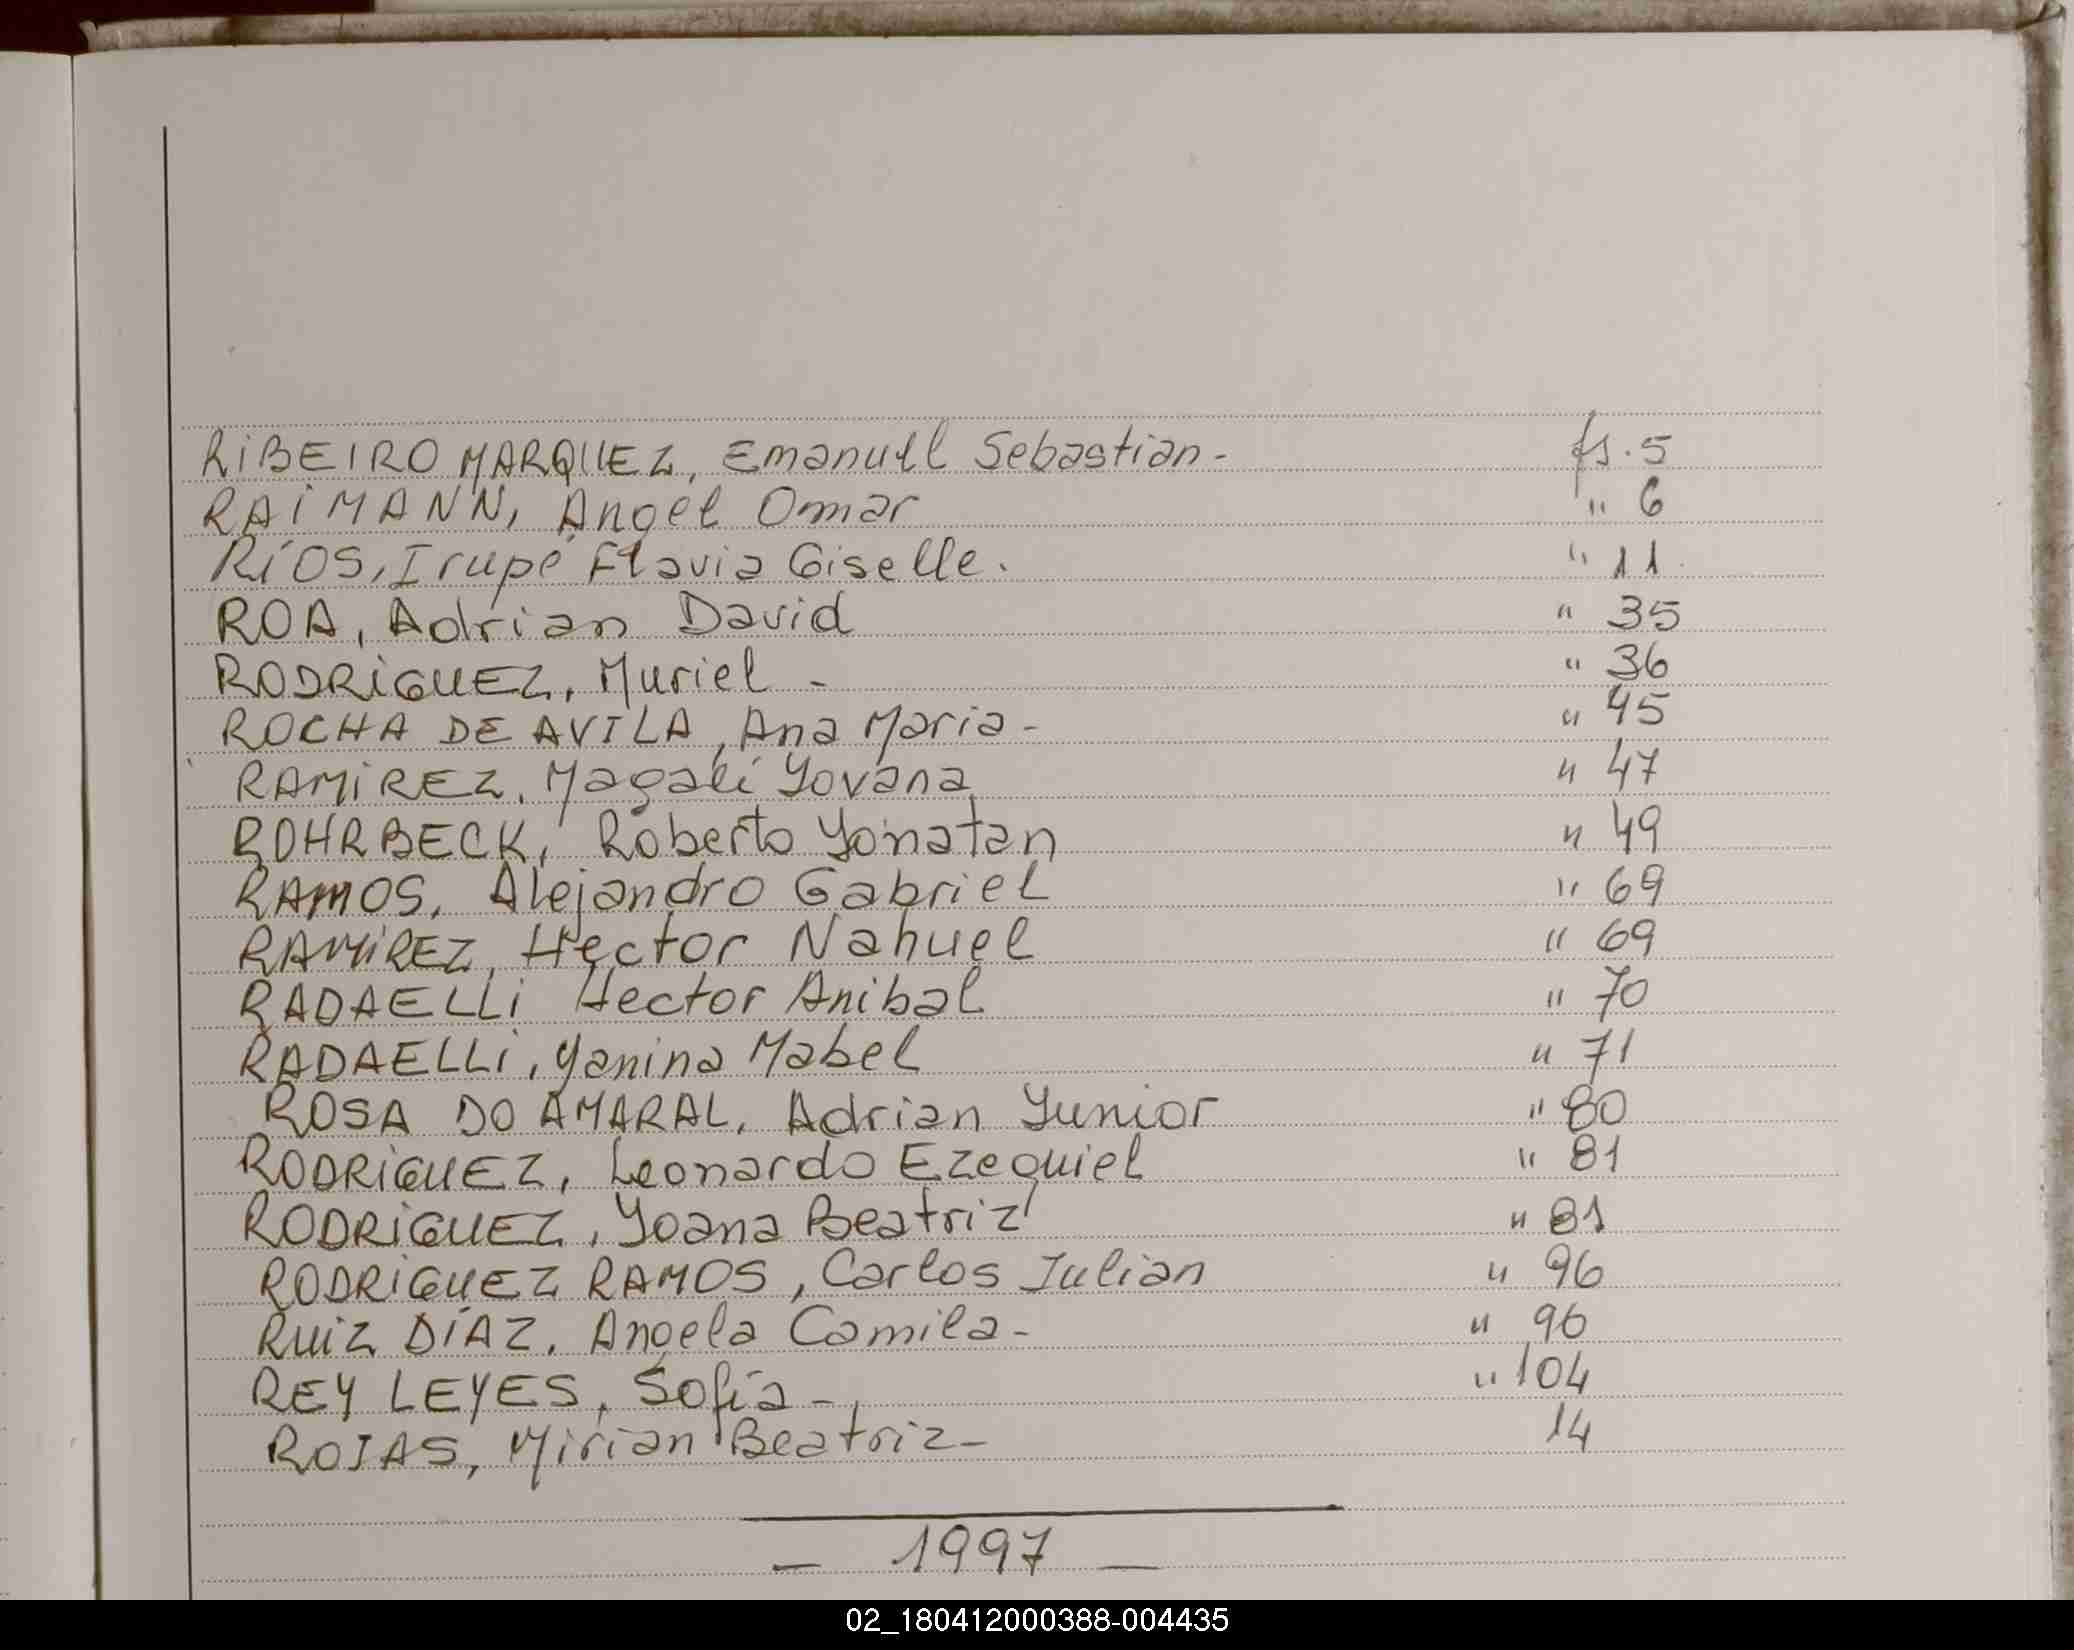 RiBEIRO MARQUEZ, Emanuel Sebastian- fs. 5
RAiMANN, Angel Omar " 6
RÍOS, Irupé Flavia Giselle. " 11
ROA, Adrian David " 35
RODRiGUEZ, Muriel - " 36
ROCHA DE AVILA, Ana Maria- " 45
RAMiREZ, Magalí Yovana " 47
ROHRBECK, Roberto Yonatan " 49
RAMOS, Alejandro Gabriel " 69
RAMiREZ, Hector Nahuel " 69
RADAELLi Hector Anibal " 70
RADAELLi, Yanina Mabel " 71
ROSA DO AMARAL, Adrian Yunior " 80
RODRiGUEZ, Leonardo Ezequiel " 81
RODRiGUEZ, Yoana Beatriz " 81
RODRiGUEZ RAMOS, Carlos Julian " 96
RUiZ DÍAZ, Angela Camila- " 96
REY LEYES, Sofía- " 104
ROJAS, Mirian Beatriz- 14
- 1997 -
02_180412000388-004435